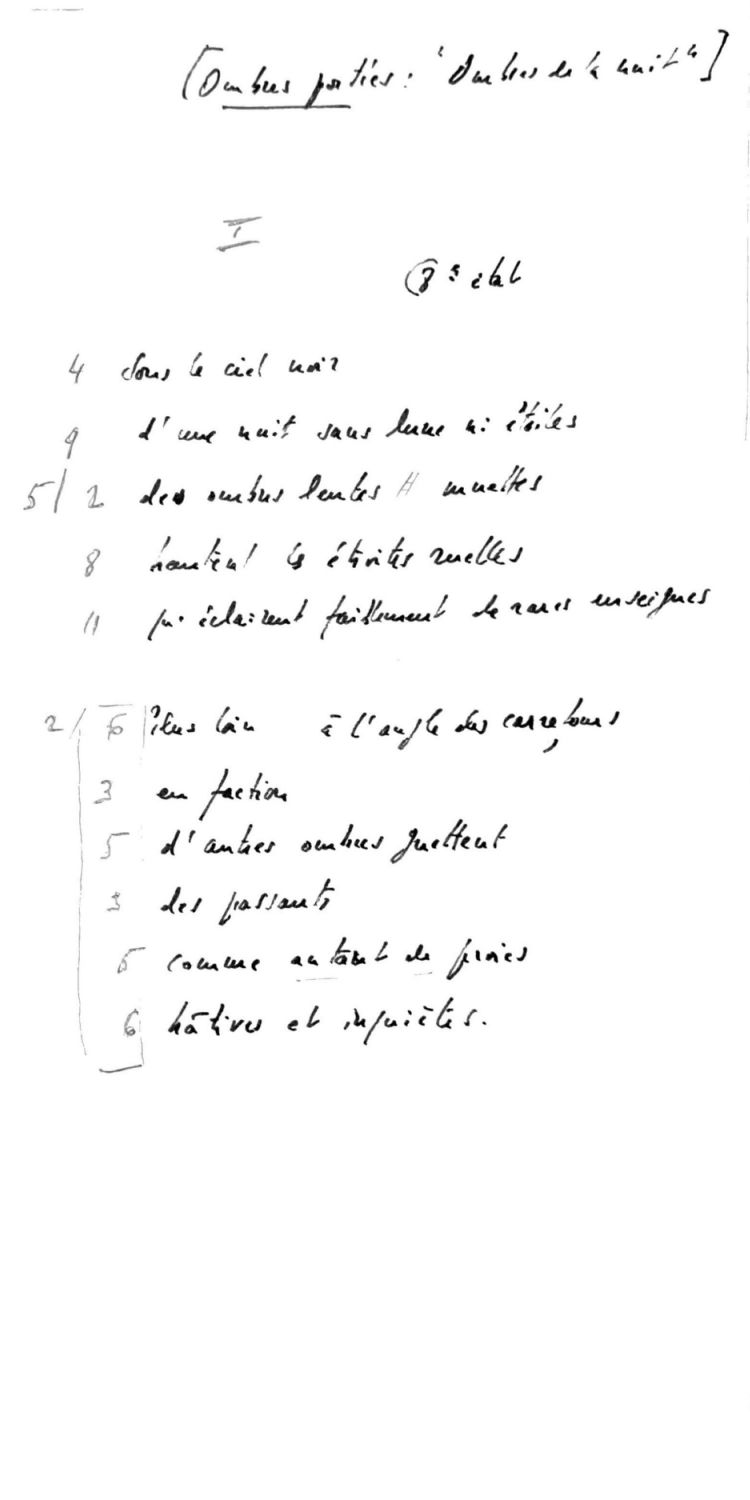 [Ombres portées : "Ombres de la nuit"]
I
8e état
4 Sous le ciel noir
9 d'une nuit sans lune ni étoiles
5/2 des ombres lentes // muettes
8 hantent les étroites ruelles
11 qu'éclairent faiblement de rares enseignes
2/6 Plus loin à l'angle des carrefours,
3 en faction
5 d'autres ombres guettent
3 des passants
5 comme autant de proies
6 hâtives et inquiètes.